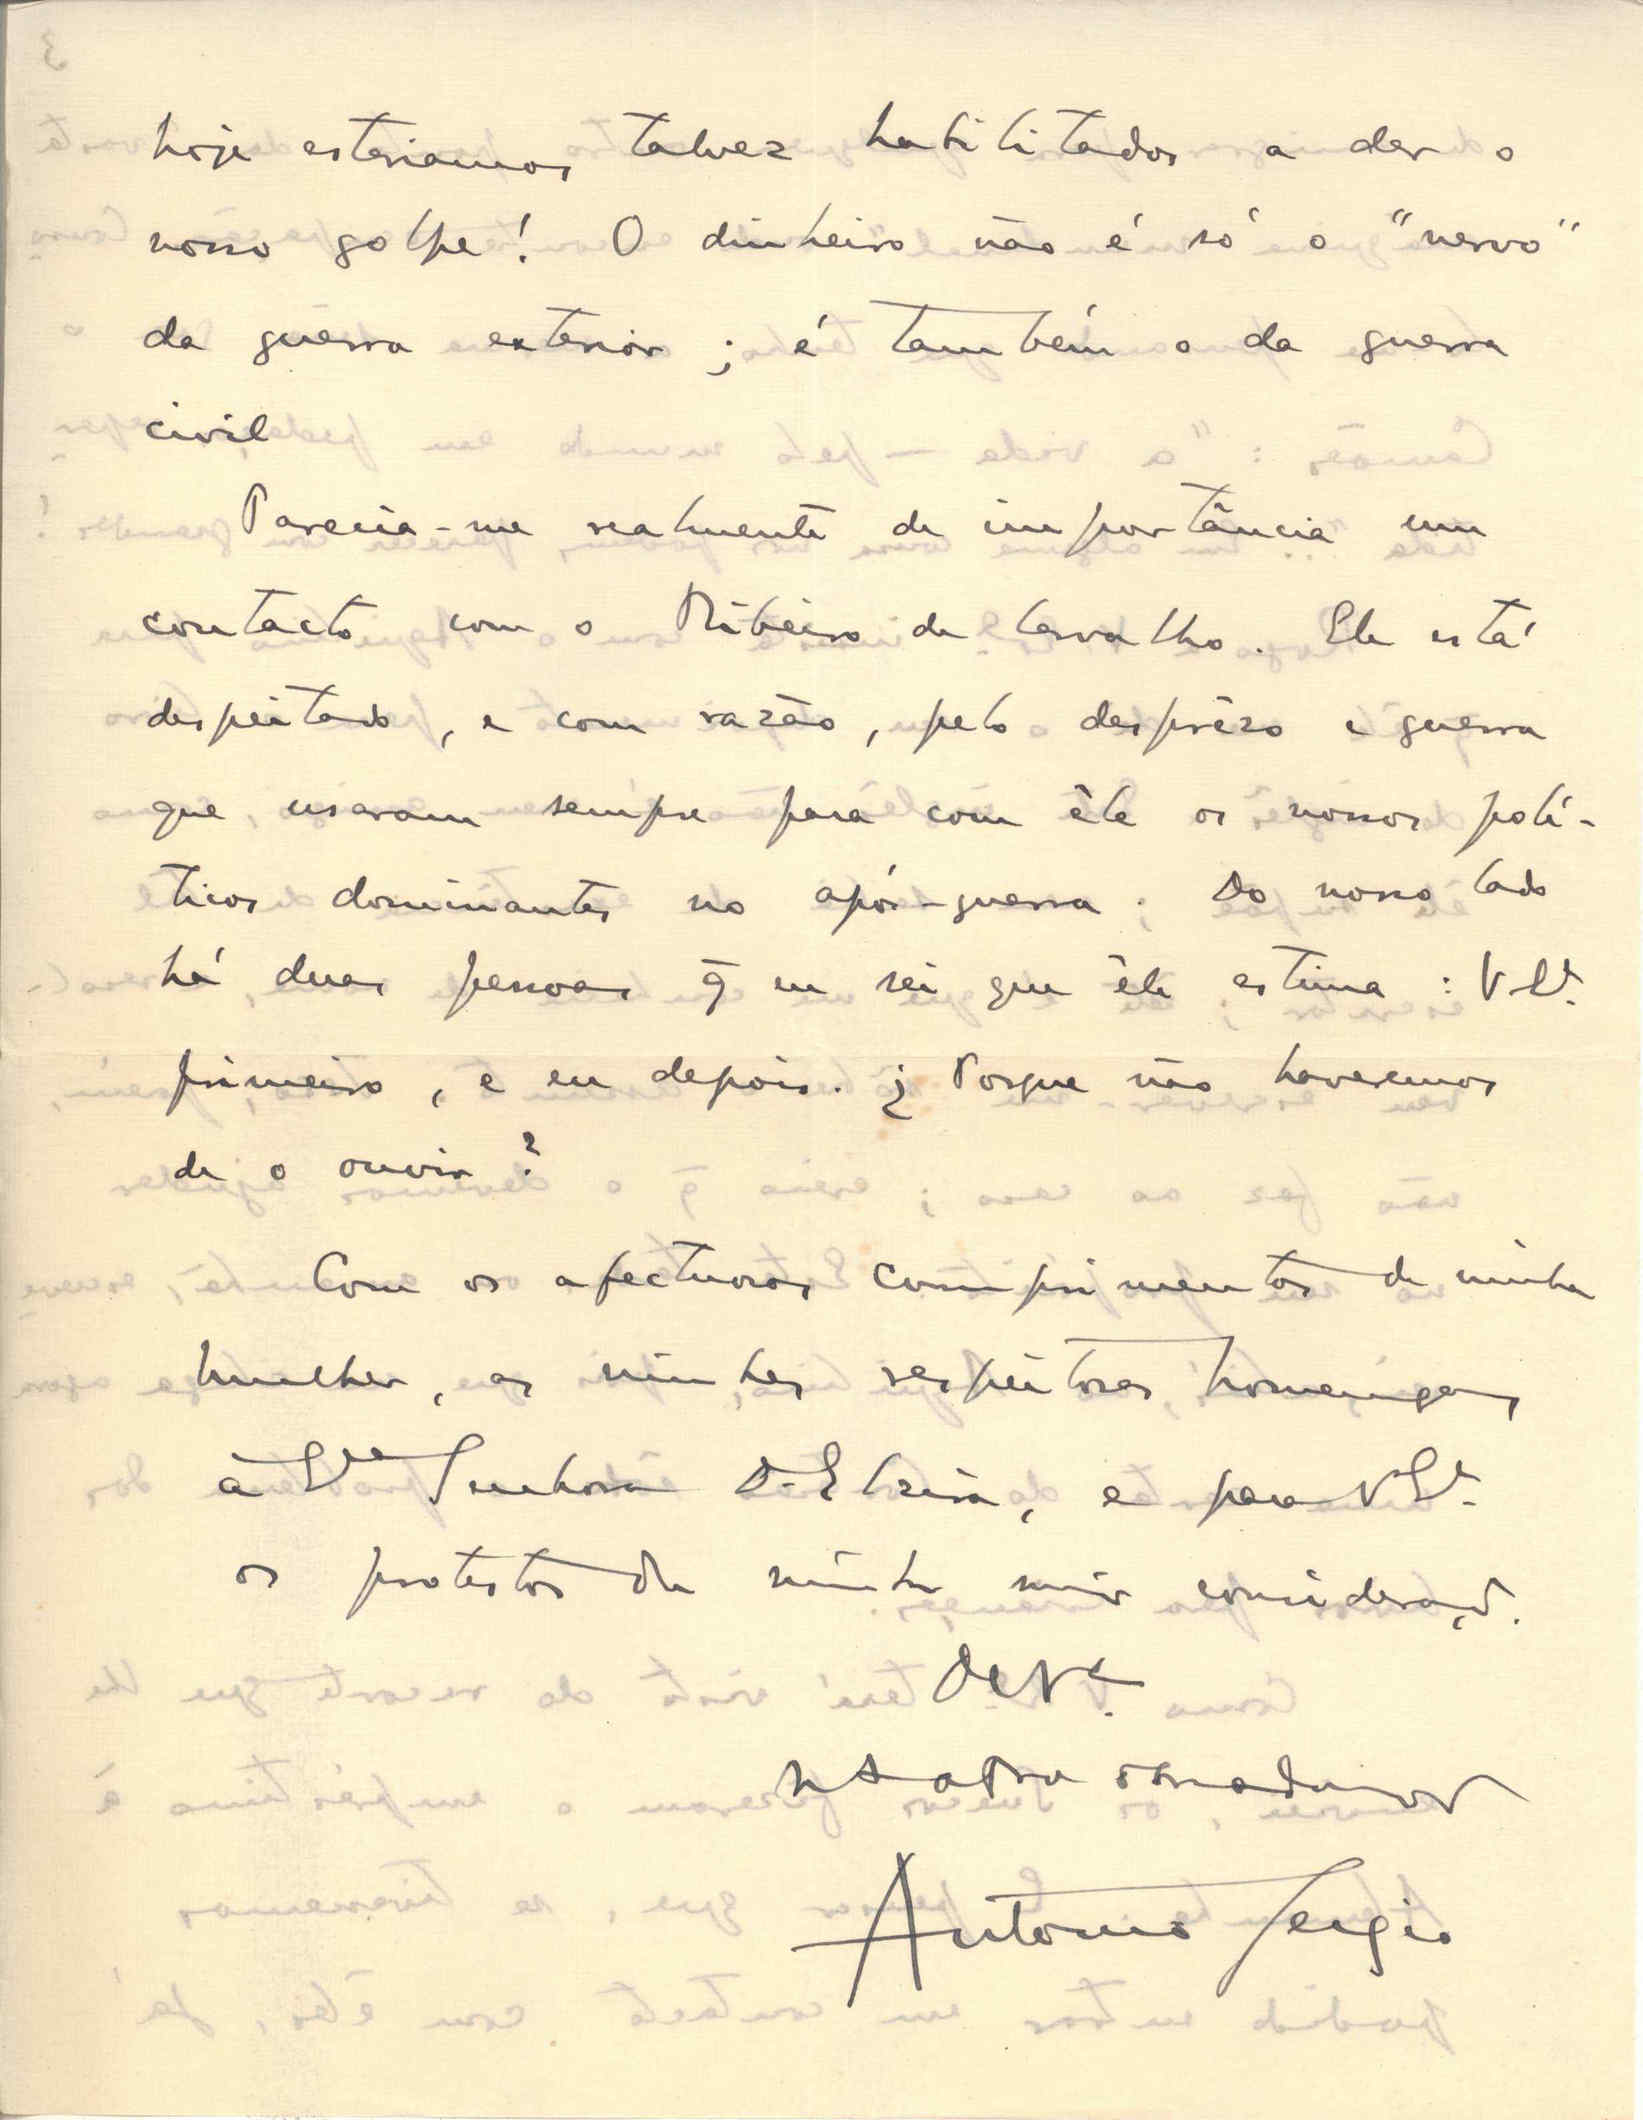 hoje estariamos talvez habilitados a dar o
nosso golpe! O dinheiro não é só o "nervo"
da guerra exterior; é também o da guerra
civil
Parecia-me realmente de importância um
contacto com o Ribeiro de Carvalho. Ele está
despeitado, e com razão, pelo desprêzo e guerra
que usaram sempre para com êle os nossos polí-
ticos dominantes no após-guerra. Do nosso lado
há duas pessoas q̃ eu sei que êle estima: V. Ex.ª
primeiro, e eu depois. ¿Porque não havemos
de o ouvir?
Com os afectuosos cumprimentos de minha
mulher, as minhas respeitosas homenagens
à Ex.ma Senhora D. Elzira, e para V. Ex.ª
os protestos da minha mor consideração.
De V. Ex.ª
admirador
Antonio Sergio